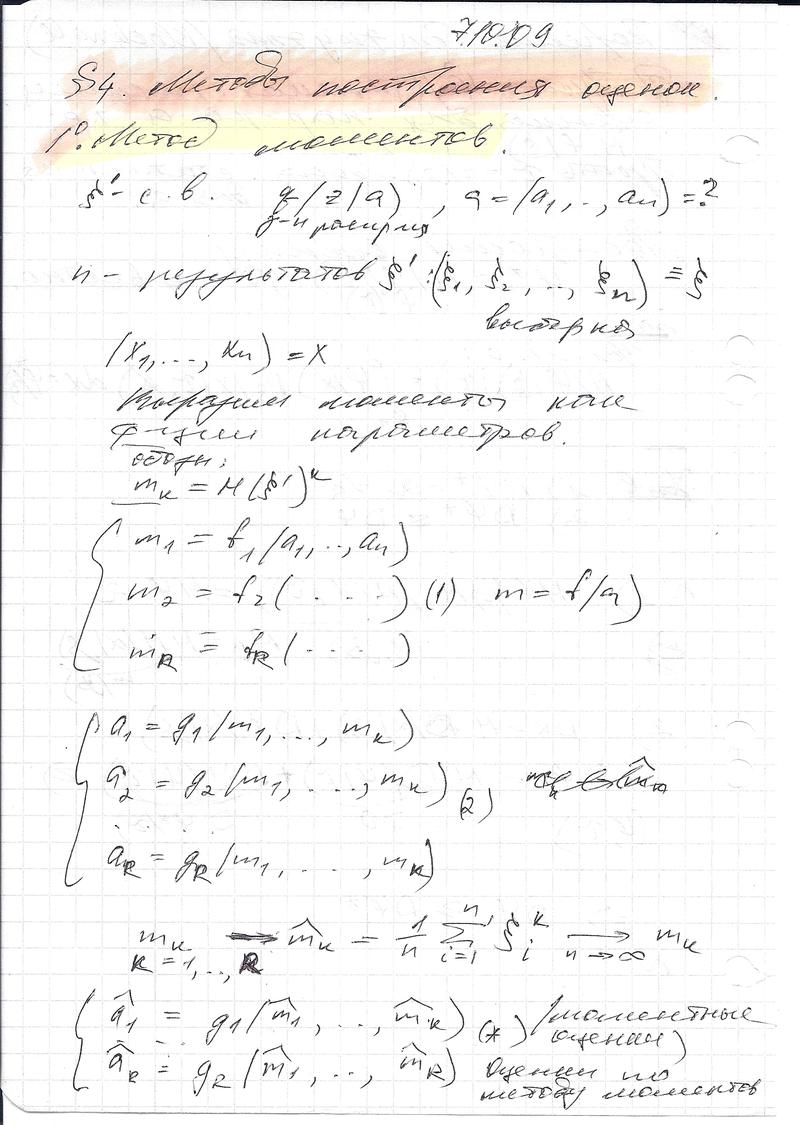 7.10.09
§4. Методы построения оценок.
1°. Метод моментов.
ξ' - с.в. q(z/a), a = (a₁,.., aₙ) = ?
ф-я распред
n - результатов ξ': (ξ₁, ξ₂, .., ξₙ) ≡ ξ
выборка
(x₁,..., xₙ) = x
Выразим моменты как
ф-ции параметров.
обозн:
mₖ = M(ξ')ᵏ
m₁ = f₁(a₁,.., aₙ)
m₂ = f₂(. . . .) (1) m = f(a)
m_R = f_R(. . . .)
a₁ = g₁(m₁,..., mₖ)
a₂ = g₂(m₁,. ..., mₖ) (2)
. . . .
a_R = g_R(m₁, . . . , mₖ)
mₖ → m̂ₖ = 1/n Σᵢ₌₁ⁿ ξᵢᵏ → mₖ
k = 1,.., R n→∞
â₁ = g₁(m̂₁, . .., m̂_R) (*) (моментные
оценки)
â_R = g_R(m̂₁,..., m̂_R) Оценки по
методу моментов